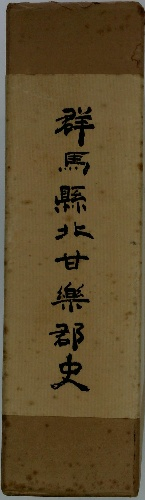 群馬縣北甘樂郡史